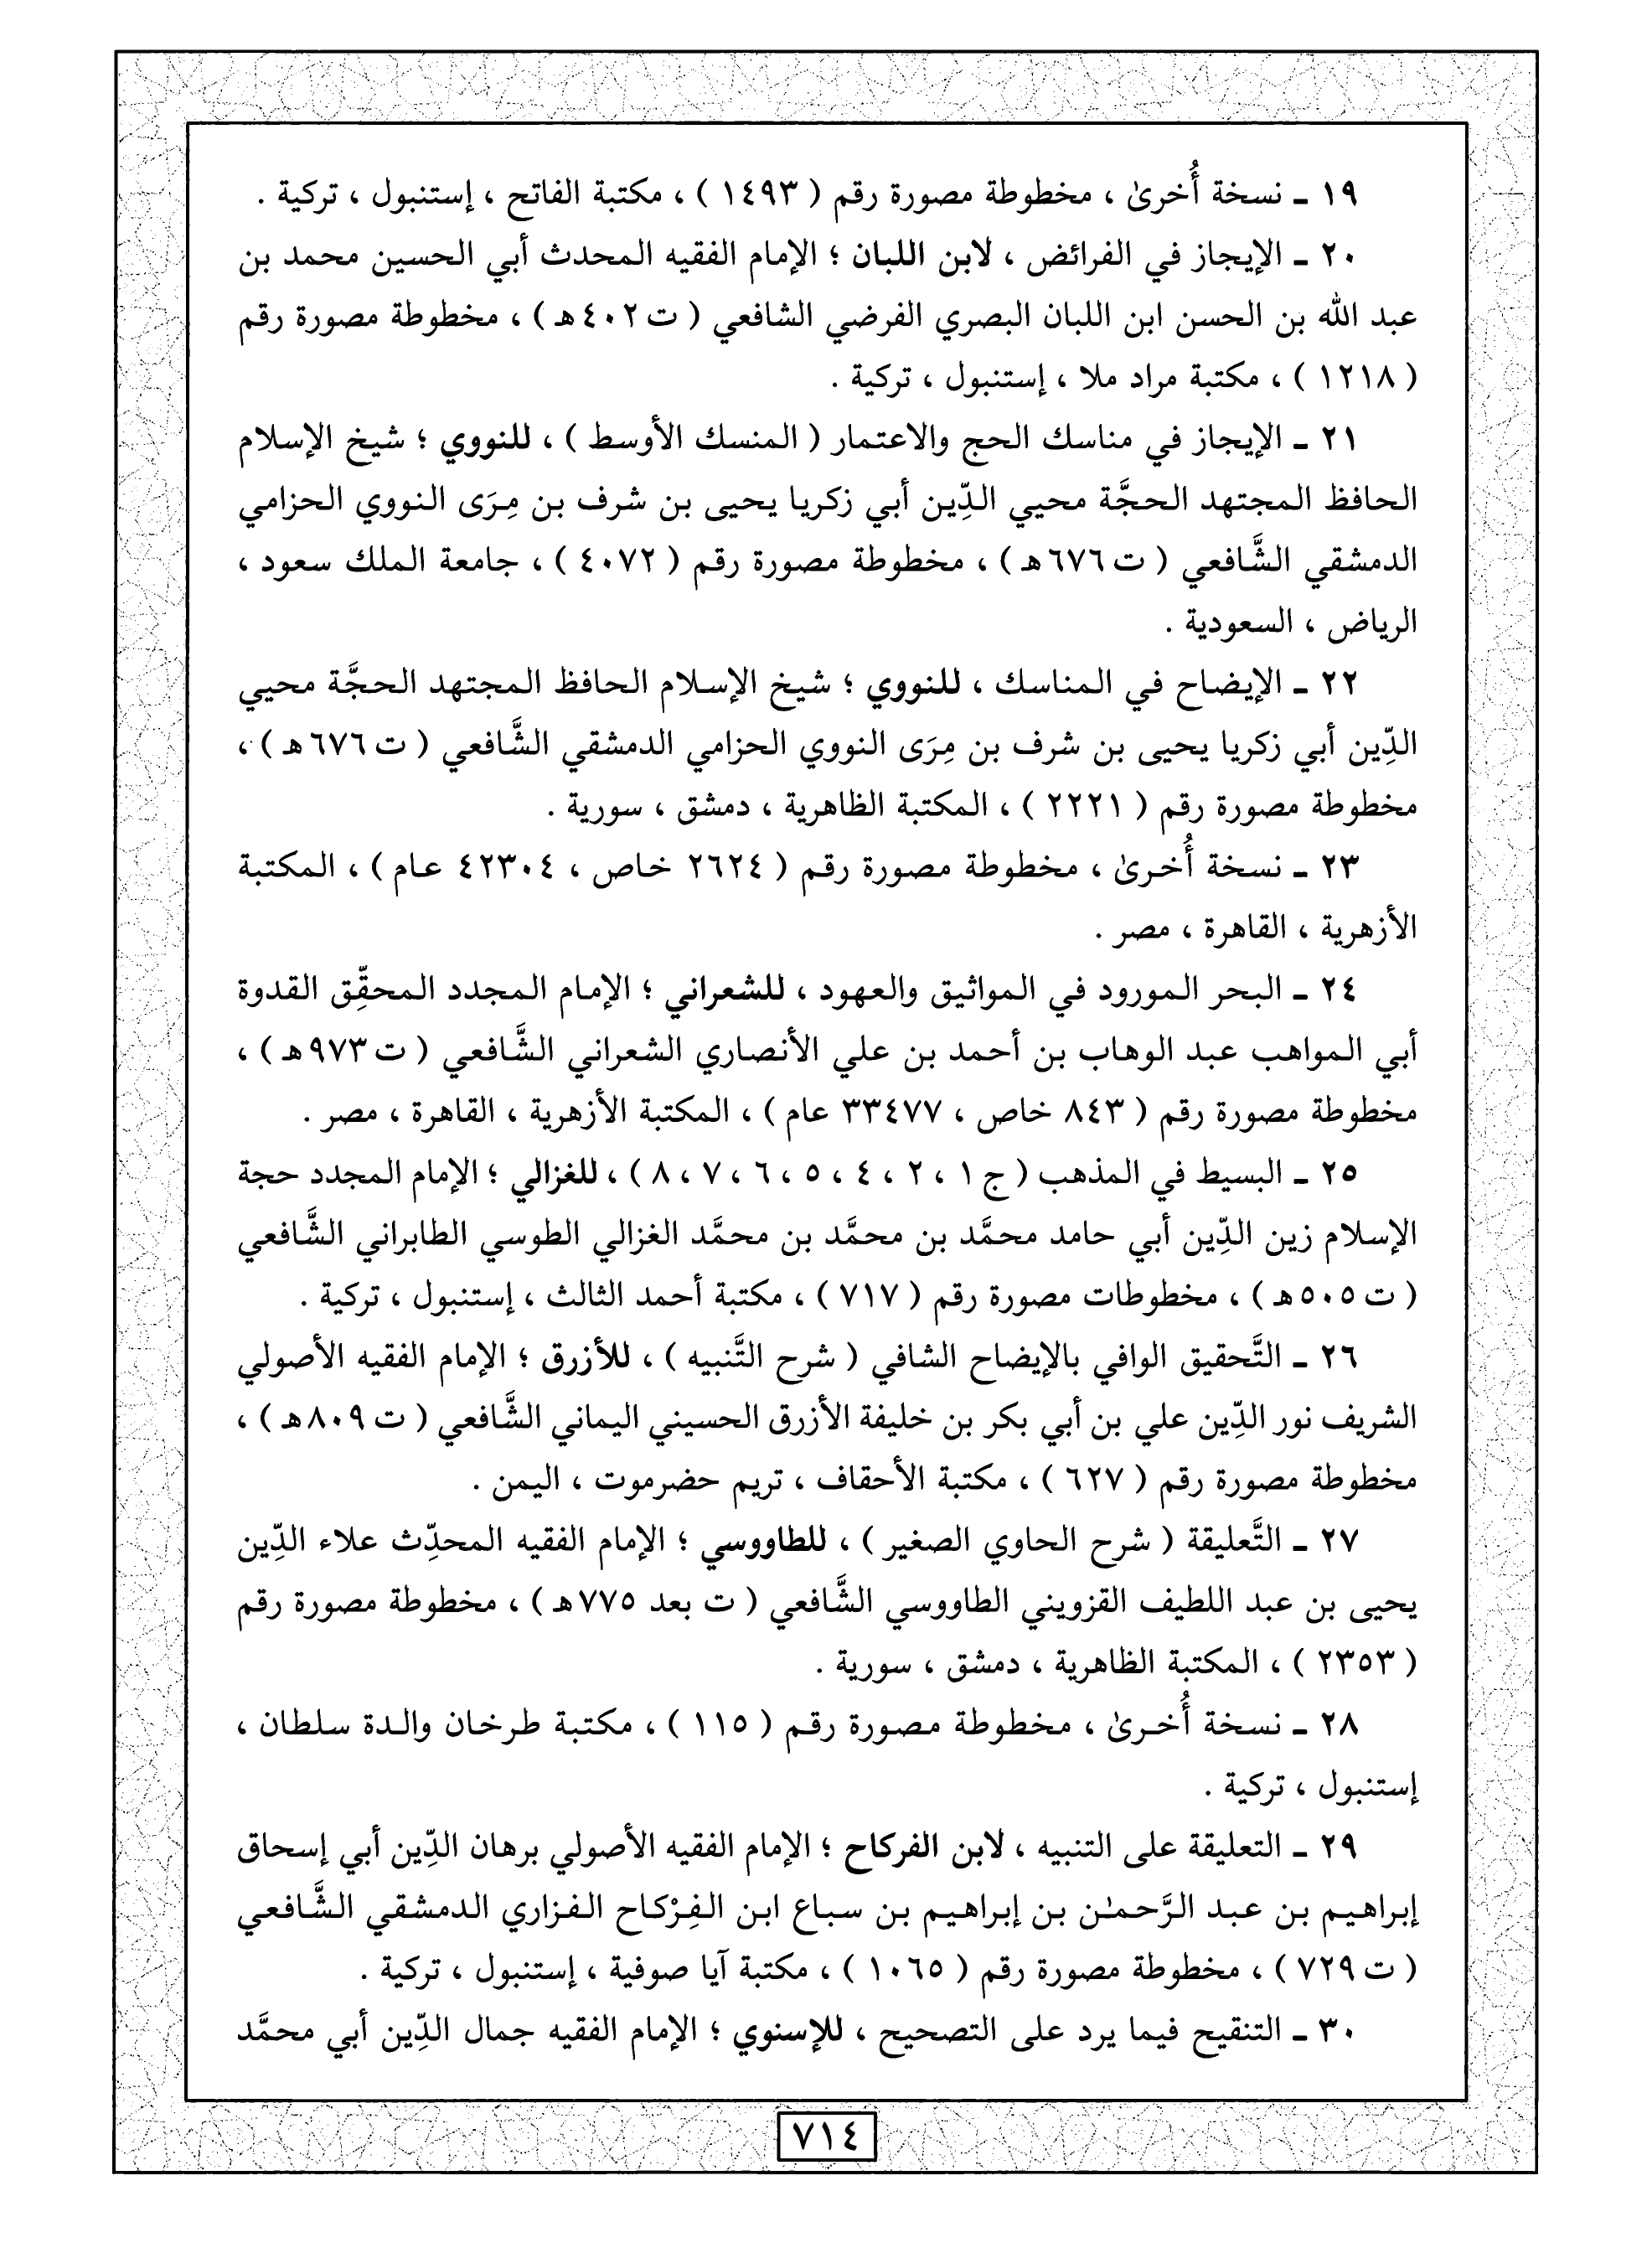 ١٩ ـ نسخة أُخرىٰ ، مخطوطة مصورة رقم ( ١٤٩٣ ) ، مكتبة الفاتح ، إستنبول ، تركية .
٢٠ ـ الإيجاز في الفرائض ، لابن اللبان ؛ الإمام الفقيه المحدث أبي الحسين محمد بن
عبد الله بن الحسن ابن اللبان البصري الفرضي الشافعي ( ت ٤٠٢هـ ) ، مخطوطة مصورة رقم
( ١٢١٨ ) ، مكتبة مراد ملا ، إستنبول ، تركية .
٢١ ـ الإيجاز في مناسك الحج والاعتمار ( المنسك الأوسط ) ، للنووي ؛ شيخ الإسلام
الحافظ المجتهد الحجَّة محيي الدِّين أبي زكريا يحيى بن شرف بن مِرَى النووي الحزامي
الدمشقي الشَّافعي ( ت ٦٧٦هـ ) ، مخطوطة مصورة رقم ( ٤٠٧٢ ) ، جامعة الملك سعود ،
الرياض ، السعودية .
٢٢ ـ الإيضاح في المناسك ، للنووي ؛ شيخ الإسلام الحافظ المجتهد الحجَّة محيي
الدِّين أبي زكريا يحيى بن شرف بن مِرَى النووي الحزامي الدمشقي الشَّافعي ( ت ٦٧٦هـ ) ،
مخطوطة مصورة رقم ( ٢٢٢١ ) ، المكتبة الظاهرية ، دمشق ، سورية .
٢٣ ـ نسخة أُخرىٰ ، مخطوطة مصورة رقم ( ٢٦٢٤ خاص ، ٤٢٣٠٤ عام ) ، المكتبة
الأزهرية ، القاهرة ، مصر .
٢٤ ـ البحر المورود في المواثيق والعهود ، للشعراني ؛ الإمام المجدد المحقِّق القدوة
أبي المواهب عبد الوهاب بن أحمد بن علي الأنصاري الشعراني الشَّافعي ( ت ٩٧٣هـ ) ،
مخطوطة مصورة رقم ( ٨٤٣ خاص ، ٣٣٤٧٧ عام ) ، المكتبة الأزهرية ، القاهرة ، مصر .
٢٥ ـ البسيط في المذهب ( ج ١ ، ٢ ، ٤ ، ٥ ، ٦ ، ٧ ، ٨ ) ، للغزالي ؛ الإمام المجدد حجة
الإسلام زين الدِّين أبي حامد محمَّد بن محمَّد بن محمَّد الغزالي الطوسي الطابراني الشَّافعي
( ت ٥٠٥هـ ) ، مخطوطات مصورة رقم ( ٧١٧ ) ، مكتبة أحمد الثالث ، إستنبول ، تركية .
٢٦ ـ التَّحقيق الوافي بالإيضاح الشافي ( شرح التَّنبيه ) ، للأزرق ؛ الإمام الفقيه الأصولي
الشريف نور الدِّين علي بن أبي بكر بن خليفة الأزرق الحسيني اليماني الشَّافعي ( ت ٨٠٩هـ ) ،
مخطوطة مصورة رقم ( ٦٢٧ ) ، مكتبة الأحقاف ، تريم حضرموت ، اليمن .
٢٧ ـ التَّعليقة ( شرح الحاوي الصغير ) ، للطاووسي ؛ الإمام الفقيه المحدِّث علاء الدِّين
يحيى بن عبد اللطيف القزويني الطاووسي الشَّافعي ( ت بعد ٧٧٥هـ ) ، مخطوطة مصورة رقم
( ٢٣٥٣ ) ، المكتبة الظاهرية ، دمشق ، سورية .
٢٨ ـ نسخة أُخرىٰ ، مخطوطة مصورة رقم ( ١١٥ ) ، مكتبة طرخان والدة سلطان ،
إستنبول ، تركية .
٢٩ ـ التعليقة على التنبيه ، لابن الفركاح ؛ الإمام الفقيه الأصولي برهان الدِّين أبي إسحاق
إبراهيم بن عبد الرَّحمـٰن بن إبراهيم بن سباع ابن الفِرْكاح الفزاري الدمشقي الشَّافعي
( ت ٧٢٩ ) ، مخطوطة مصورة رقم ( ١٠٦٥ ) ، مكتبة آيا صوفية ، إستنبول ، تركية .
٣٠ ـ التنقيح فيما يرد على التصحيح ، للإسنوي ؛ الإمام الفقيه جمال الدِّين أبي محمَّد
٧١٤